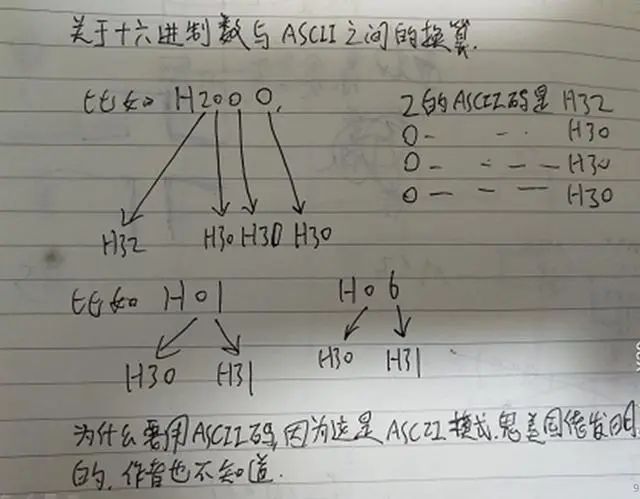 关于十六进制数与ASCII之间的换算.
比如 H2000,
2的ASCII码是 H32
0 — — — H30
0 — — — H30
0 — — — H30
H32 H30 H30 H30
比如 H01 H06
H30 H31 H30 H31
为什么要用ASCII码,因为这是ASCII模式,鬼美国佬发明
的,作者也不知道.